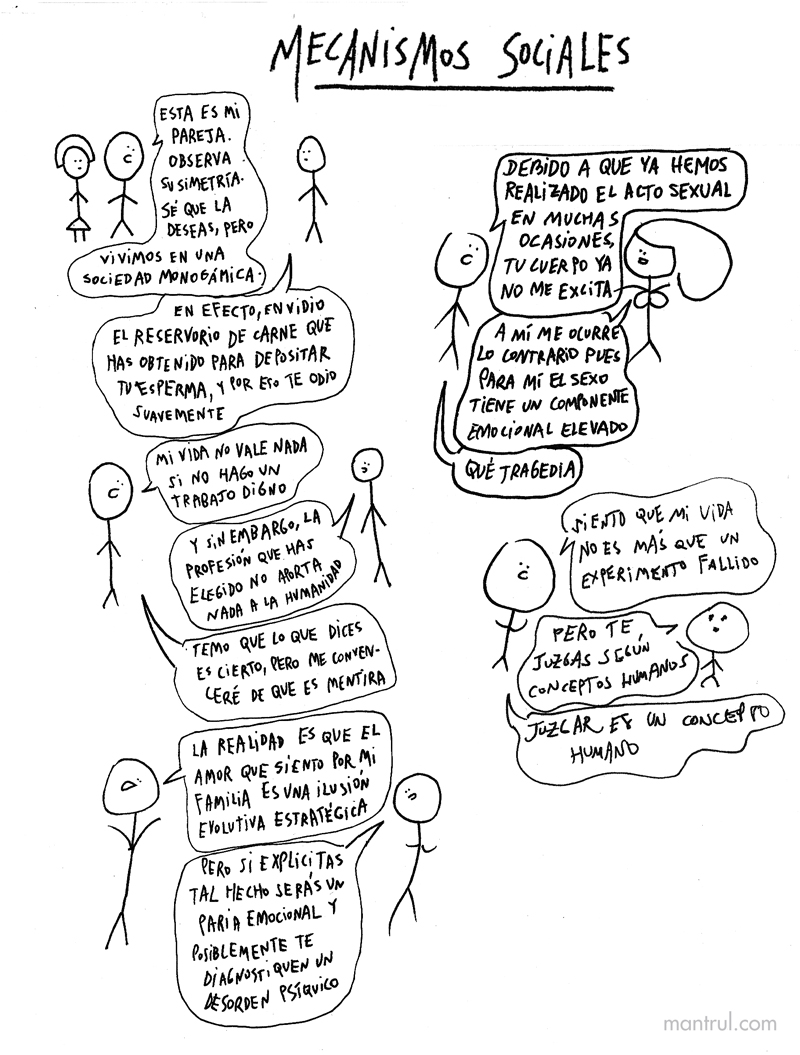 MECANISMOS SOCIALES
ESTA ES MI
PAREJA.
OBSERVA
SU SIMETRÍA.
SÉ QUE LA
DESEAS, PERO
VIVIMOS EN UNA
SOCIEDAD MONOGÁMICA.
EN EFECTO, ENVIDIO
EL RESERVORIO DE CARNE QUE
HAS OBTENIDO PARA DEPOSITAR
TU ESPERMA, Y POR ESO TE ODIO
SUAVEMENTE
MI VIDA NO VALE NADA
SI NO HAGO UN
TRABAJO DIGNO
Y SIN EMBARGO, LA
PROFESIÓN QUE HAS
ELEGIDO NO APORTA
NADA A LA HUMANIDAD
TEMO QUE LO QUE DICES
ES CIERTO, PERO ME CONVEN-
CERÉ DE QUE ES MENTIRA
LA REALIDAD ES QUE EL
AMOR QUE SIENTO POR MI
FAMILIA ES UNA ILUSIÓN
EVOLUTIVA ESTRATÉGICA
PERO SI EXPLICITAS
TAL HECHO SERÁS UN
PARIA EMOCIONAL Y
POSIBLEMENTE TE
DIAGNOSTIQUEN UN
DESORDEN PSÍQUICO
DEBIDO A QUE YA HEMOS
REALIZADO EL ACTO SEXUAL
EN MUCHAS
OCASIONES,
TU CUERPO YA
NO ME EXCITA
A MÍ ME OCURRE
LO CONTRARIO PUES
PARA MÍ EL SEXO
TIENE UN COMPONENTE
EMOCIONAL ELEVADO
QUÉ TRAGEDIA
SIENTO QUE MI VIDA
NO ES MÁS QUE UN
EXPERIMENTO FALLIDO
PERO TE
JUZGAS SEGÚN
CONCEPTOS HUMANOS
JUZGAR ES UN CONCEPTO
HUMANO
mantrul.com